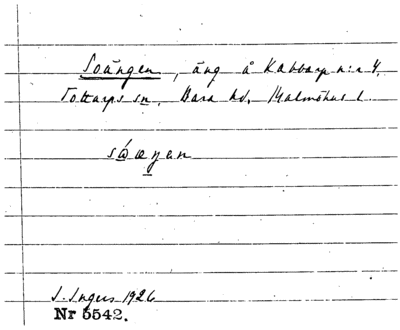 Soängen, äng å Kabbarp n:r 4,
Tottarps sn, Bara hd, Malmöhus l.
I. Ingers 1926
Nr 5542.